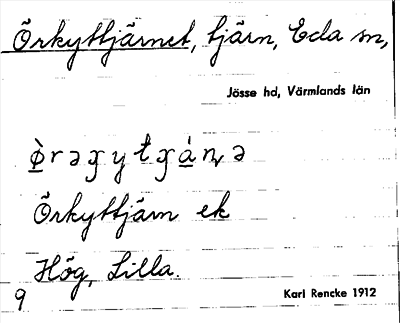 Örkyttjärnet, tjärn, Eda sn,
Jösse hd, Värmlands län
Örkyttjärn ek
Hög, Lilla.
9
Karl Rencke 1912